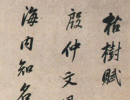 枯樹賦
殷仲文風
海内知名